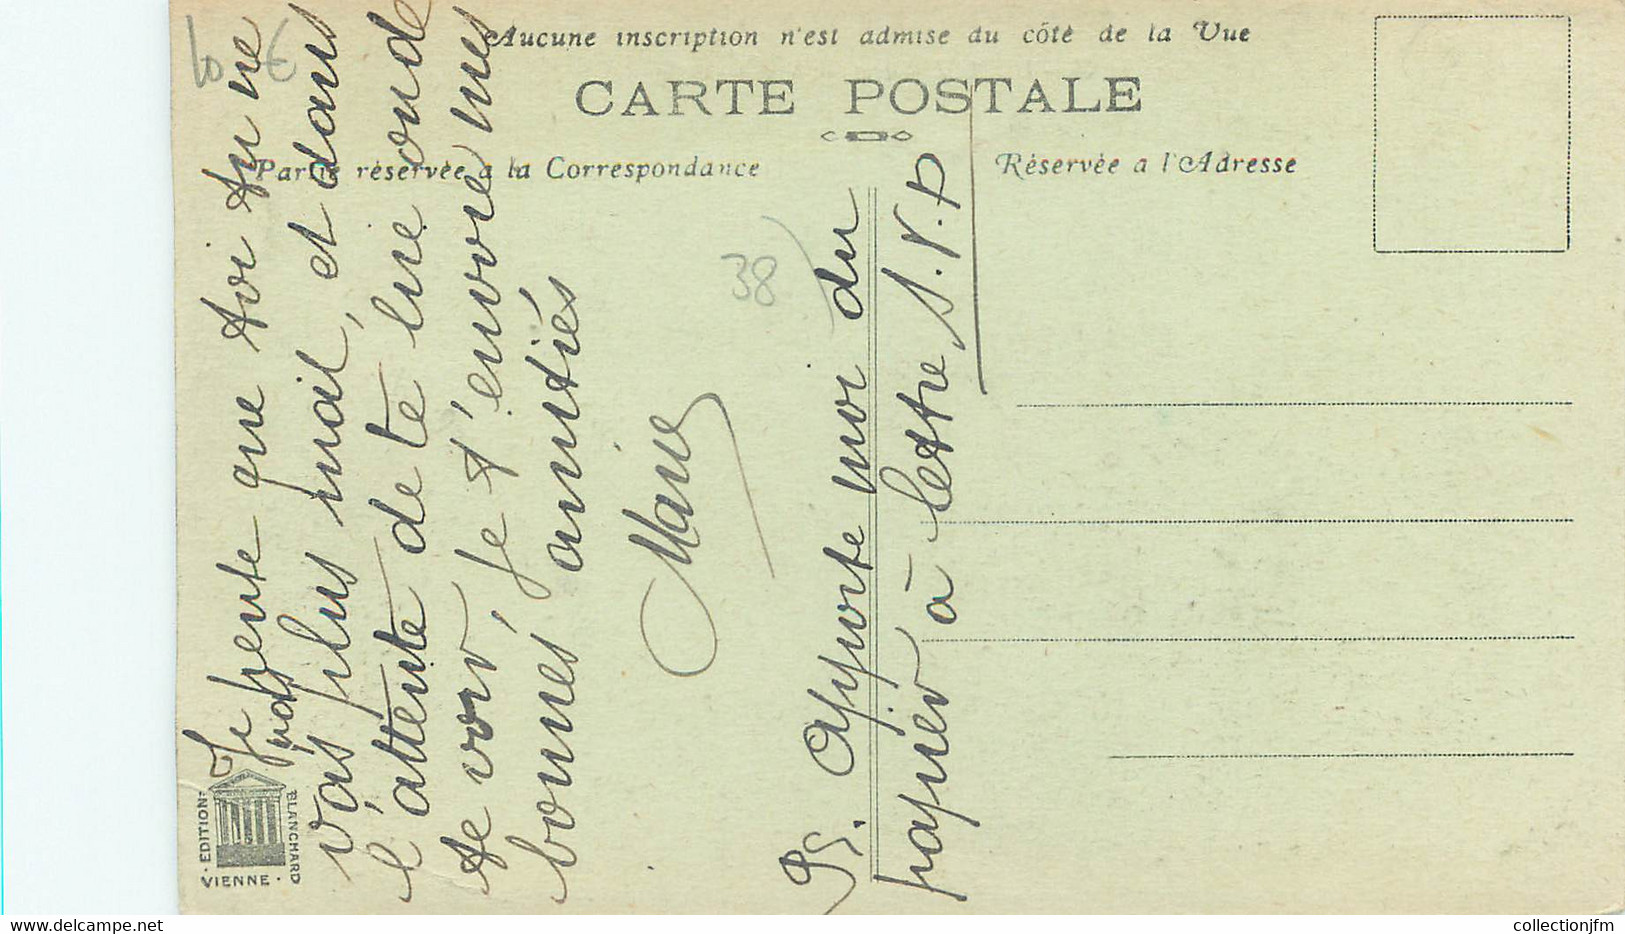 Aucune inscription n'est admise du côté de la Vue
CARTE POSTALE
Partie réservée a la Correspondance
Réservée a l'Adresse
Je pense que toi tu ne
vas pas
plus mal, et dans
l'attente de te lire ou de
te voir, je t'envoie mes
bonnes amitiés
Marie
PS. apporte moi du
papier à lettre S.V.P
38
EDITION
BLANCHARD
VIENNE
collectionjfm